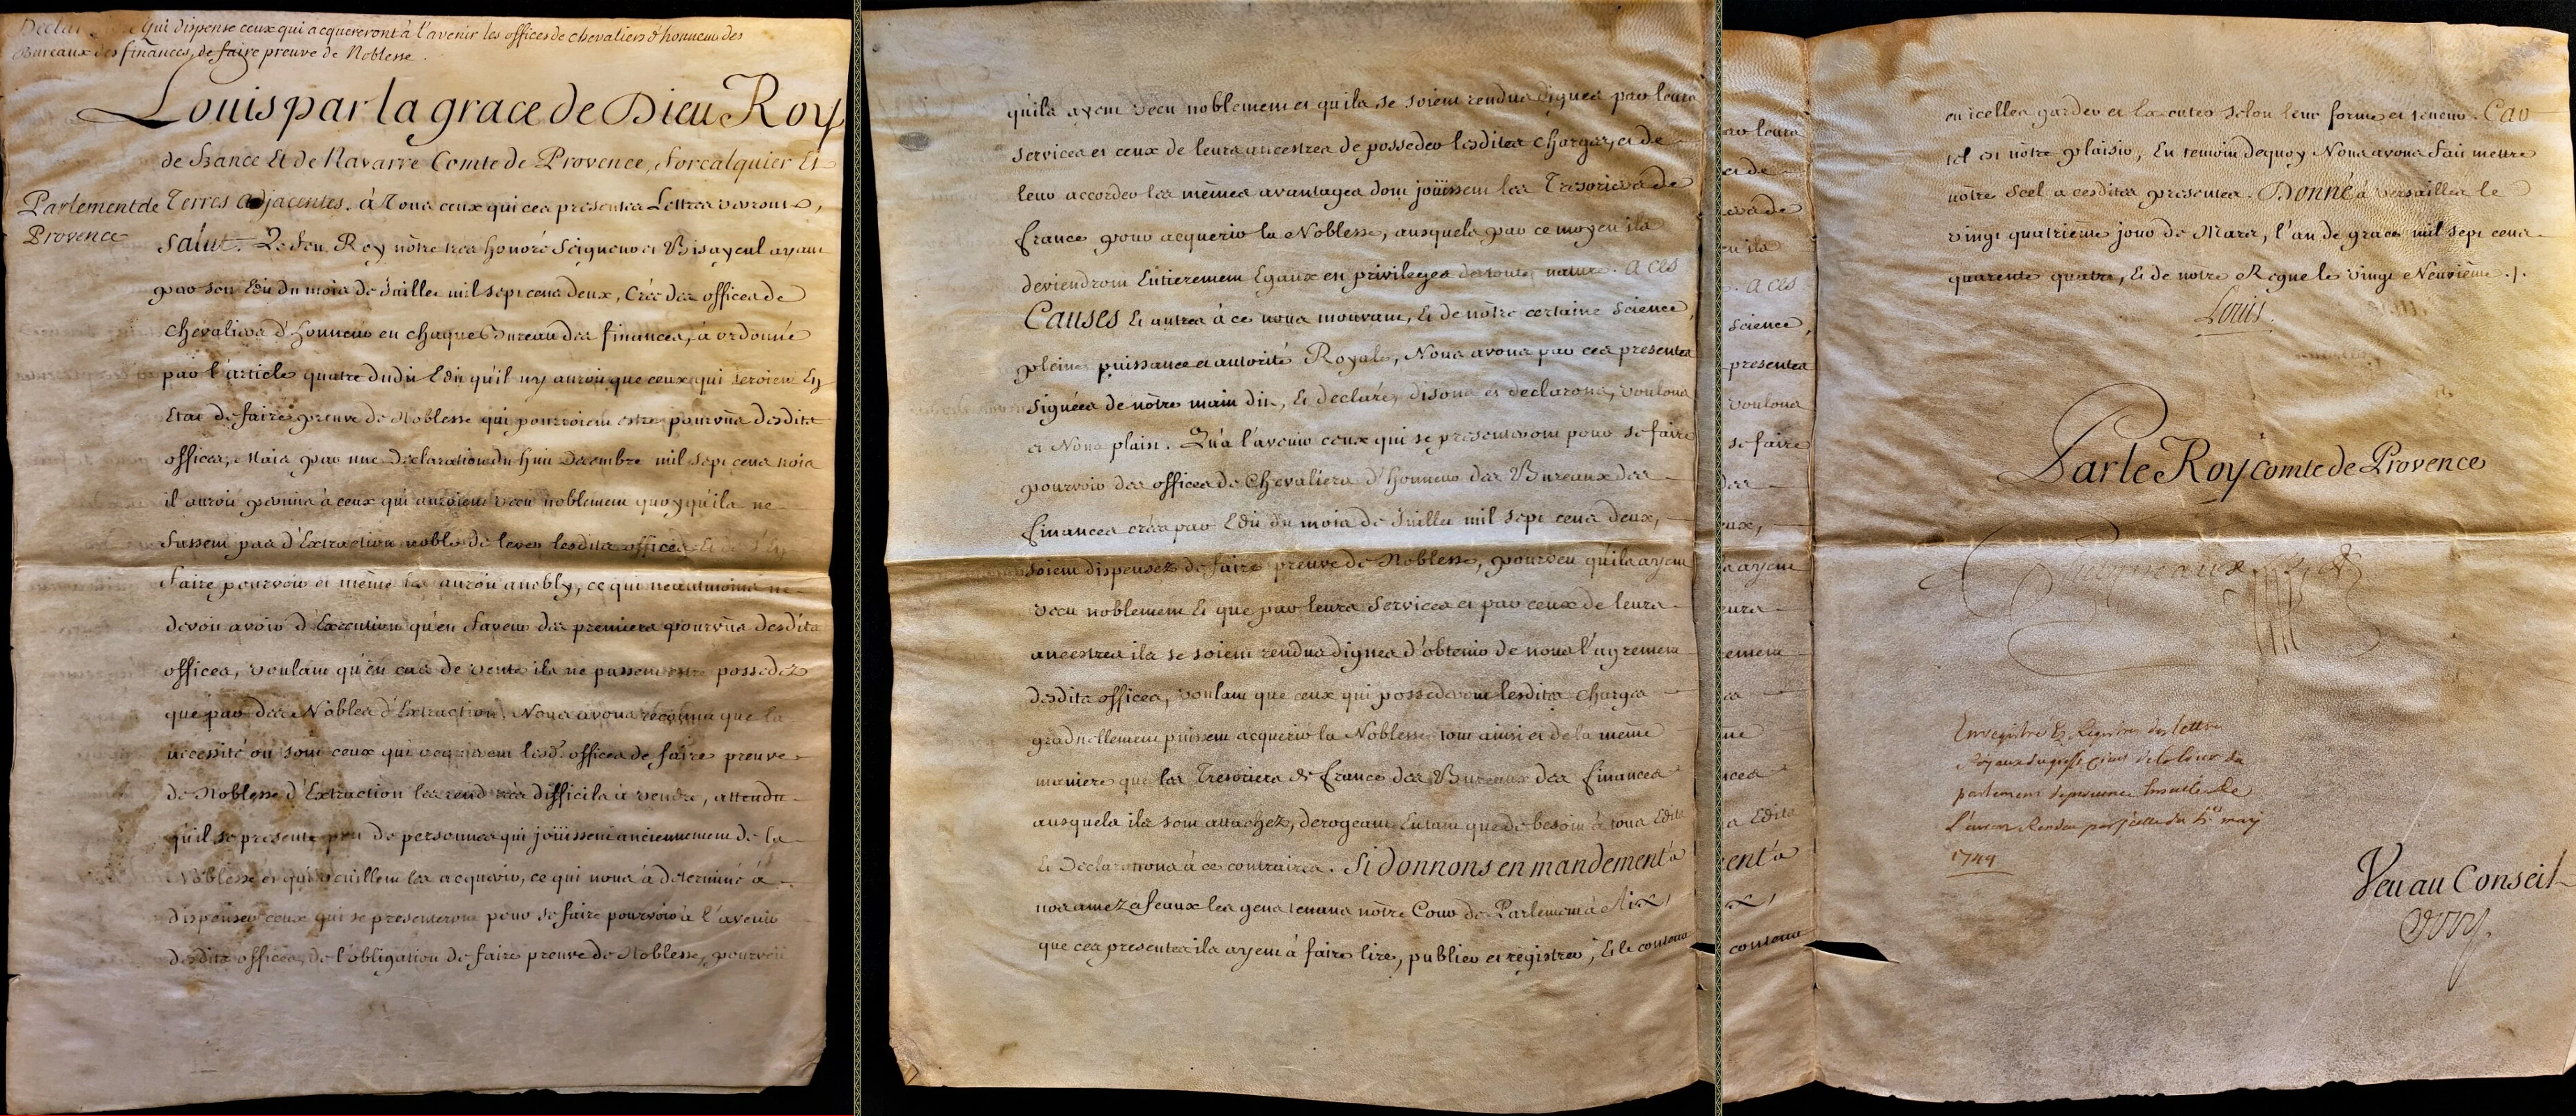 qui dispense ceux qui acquereront à l'avenir les offices de chevaliers d'honneur des
Bureaux des finances, de faire preuve de Noblesse.
Louis par la grace de Dieu Roy
de france Et de Navarre Comte de Provence, Forcalquier Et
Parlement de
Provence
Terres adjacentes. à Tous ceux qui ces presentes Lettres verront,
salut. Le feu Roy nôtre tres honoré Seigneur et Bisayeul ayant
par son Edit du mois de Juillet mil sept cens deux, Créé des offices de
chevaliers d'Honneur en chaque Bureau des finances, à ordonné
par l'article quatre dudit Edit qu'il n'y auroit que ceux qui seroient En
Etat de faire preuve de Noblesse qui pourroient estre pourvûs desdits
offices, Mais par une Declaration du huit Decembre mil sept cens trois
il auroit permis à ceux qui auroient vecu noblement quoyqu'ils ne
fussent pas d'Extraction noble de lever lesdits offices Et de s'En
faire pourvoir et même les auroit anobly, ce qui neantmoins ne
devoit avoir d'Execution qu'en faveur des premiers pourvûs desdits
offices, voulant qu'en cas de vente ils ne pussent estre possedez
que par des Nobles d'Extraction, Nous avons reconnu que la
necessité où sont ceux qui acquierent lesd. offices de faire preuve
de Noblesse d'Extraction les rend très difficils à vendre, attendu
qu'il se presente peu de personnes qui joüissent anciennement de la
Noblesse et qui veuillent les acquerir, ce qui nous à déterminé à
dispenser ceux qui se presenteront pour se faire pourvoir à l'avenir
desdits offices, de l'obligation de faire preuve de Noblesse, pourveu
qu'ils ayent vecu noblement et qu'ils se soient rendus dignes par leurs
services et ceux de leurs ancestres de posseder lesdites charges, et de
leur accorder les mêmes avantages dont joüissent les Tresoriers de
france pour acquerir la Noblesse, ausquels par ce moyen ils
deviendront Entierement Egaux en privileges de toute nature. A ces
Causes Et autres à ce nous mouvant, Et de nôtre certaine Science,
pleine puissance et autorité Royale, Nous avons par ces presentes
signées de nôtre main dit, Et declaré, disons et declarons, voulons
et Nous plaist. Qu'à l'avenir ceux qui se presenteront pour se faire
pourvoir des offices de Chevaliers d'Honneur des Bureaux des
finances créés par Edit du mois de Juillet mil sept cens deux,
soient dispensez de faire preuve de Noblesse, pourveu qu'ils ayent
vecu noblement Et que par leurs services et par ceux de leurs
ancestres ils se soient rendus dignes d'obtenir de nous l'agrement
desdits offices, voulant que ceux qui possederont lesdites charges
graduellement puissent acquerir la Noblesse, tout ainsi et de la même
maniere que les Tresoriers de france des Bureaux des finances
ausquels ils sont attachez, derogeant Entant que de besoin à tous Edits
Et Declarations à ce contraires. Si donnons en mandement à
nos amez et feaux les gens tenans nôtre Cour de Parlement à Aix,
que ces presentes ils ayent à faire lire, publier et registrer, Et le contenu
en icelles garder et Executer selon leur forme et teneur. Car
tel est nôtre plaisir, En temoin dequoy Nous avons fait mettre
nôtre Scel a cesdites presentes. Donné à Versailles le
vingt quatrieme jour de Mars, l'an de grace mil sept cens
quarente quatre, Et de notre Regne le vingt Neuvième ./.
Louis
Par le Roy Comte de Provence
Enregistré Es Registres des lettres
Royaux du greffe civil de la Cour du
parlement de provence suivant
l'arrest Rendu par icelle du may
1744
Veu au Conseil